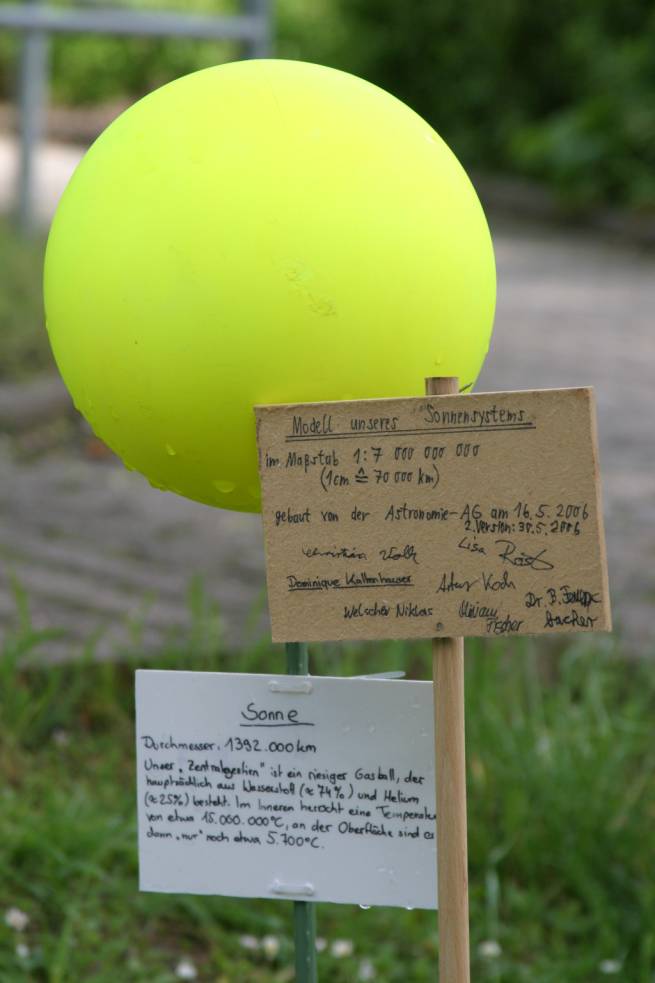 Modell unseres Sonnensystems
im Maßstab 1:7 000 000 000
(1cm ≙ 70 000 km)
gebaut von der Astronomie-AG am 16.5.2006
2. Version: 30.5.2006
Christian
Lisa
Dominique Kaltenhauser
Artur Koch
Welscher Niklas
Miriam Fischer
Dr. B.
Sonne
Durchmesser: 1392.000km
Unser „Zentralgestirn" ist ein riesiger Gasball, der
hauptsächlich aus Wasserstoff (≈74%) und Helium
(≈25%) besteht. Im Inneren herrscht eine Temperatur
von etwa 15.000.000°C, an der Oberfläche sind es
dann „nur" noch etwa 5.700°C.